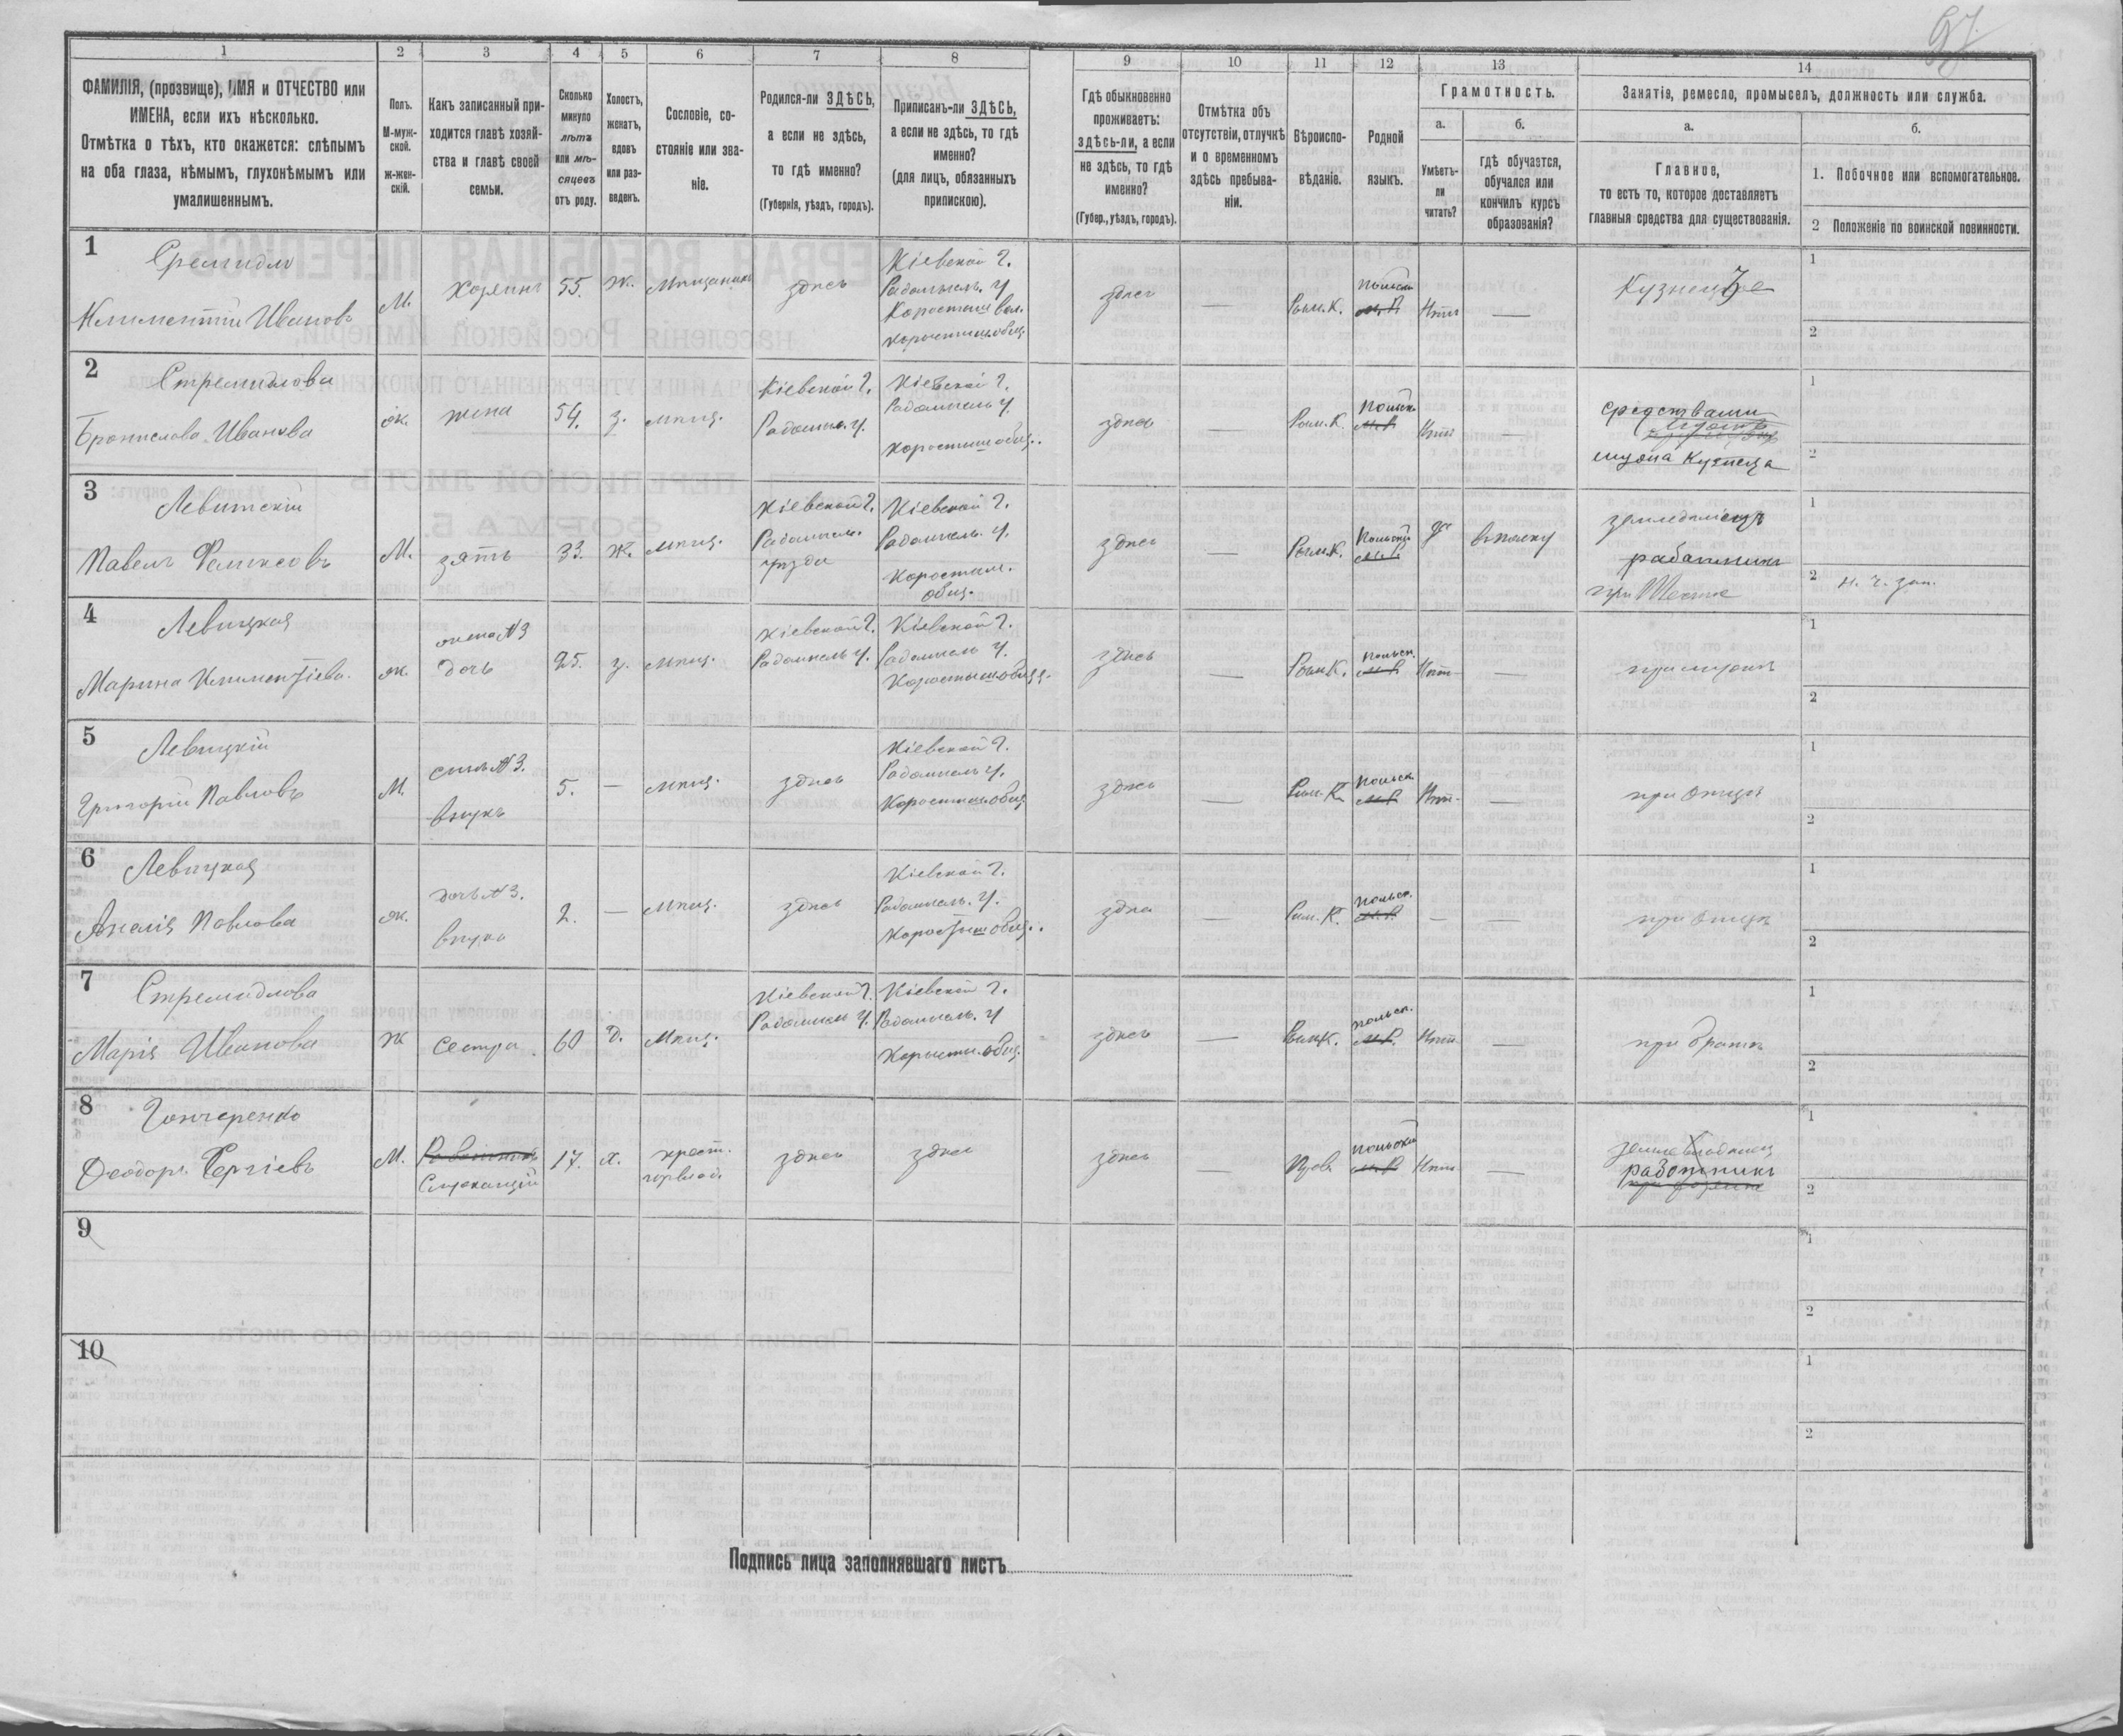 97.
1
2
3
4
5
6
7
8
9
10
11
12
13
14
ФАМИЛІЯ, (прозвище), ИМЯ и ОТЧЕСТВО или
ИМЕНА, если ихъ нѣсколько.
Отмѣтка о тѣхъ, кто окажется: слѣпымъ
на оба глаза, нѣмымъ, глухонѣмымъ или
умалишеннымъ.
Полъ.
М-муж-
ской.
ж-жен-
скій.
Какъ записанный при-
ходится главѣ хозяй-
ства и главѣ своей
семьи.
Сколько
минуло
лѣтъ
или мѣ-
сяцевъ
отъ роду.
Холостъ,
женатъ,
вдовъ
или раз-
веденъ.
Сословіе, со-
стояніе или зва-
ніе.
Родился-ли ЗДѢСЬ,
а если не здѣсь,
то гдѣ именно?
(Губернія, уѣздъ, городъ).
Приписанъ-ли ЗДѢСЬ,
а если не здѣсь, то гдѣ
именно?
(для лицъ, обязанныхъ
припискою).
Гдѣ обыкновенно
проживаетъ:
здѣсь-ли, а если
не здѣсь, то гдѣ
именно?
(Губер., уѣздъ, городъ).
Отмѣтка объ
отсутствіи, отлучкѣ
и о временномъ
здѣсь пребыва-
ніи.
Вѣроиспо-
вѣданіе.
Родной
языкъ.
Грамотность.
а.
Умѣетъ-
ли
читать?
б.
гдѣ обучается,
обучался или
кончилъ курсъ
образованія?
Занятіе, ремесло, промыселъ, должность или служба.
а.
Главное,
то есть то, которое доставляетъ
главныя средства для существованія.
б.
1. Побочное или вспомогательное.
2 Положеніе по воинской повинности.
1
Климентій Ивановъ
М.
хозяинъ
55.
ж.
Мѣщанинъ
здѣсь
Кіевской г.
Радомысль. у
здѣсь
—
Рим. К.
Польск
Нѣтъ
—
1
2
2
Стремидлова
Бронислава Иванова
ж.
жена
54.
з.
мѣщ.
Кіевской г.
Радомыс. у.
Кіевской г.
Радомысль у.
Коростыш общ.
здѣсь
—
Рим. К.
Польск
Нѣтъ
—
средствами
мужа Кузнеца
1
2
3
Левитскій
Павелъ Феликсовъ
М.
зять
33.
ж.
мѣщ.
Кіевской г.
Радомысль.
уѣзда
Кіевской г.
Радомысль. у.
Коростыш.
общ.
здѣсь
—
Рим. К.
Польск
да
работникъ
при Тестѣ
1
2
4
Левицкая
Марина Климентіева.
ж.
жена №3
дочь
25.
з.
мѣщ.
Кіевской г.
Радомысль у.
Кіевской г.
Радомысль у.
Коростыш общ.
здѣсь
—
Рим К.
Польск.
Нѣтъ
—
при мужѣ
1
2
5
Левицкій
Григорій Павловъ
М.
сынъ №3.
внукъ
5.
—
мѣщ.
здѣсь
Кіевской г.
Радомысль у.
Коростыш общ
здѣсь
—
Рим. К.
Польск
Нѣтъ
—
при отцѣ
1
2
6
Левицкая
Анелія Павлова
ж.
дочь №3.
внука
2.
—
мѣщ.
здѣсь
Кіевской г.
Радомысль. у.
Коростыш общ.
здѣсь
—
Рим. К.
Польск.
—
—
при отцѣ
1
2
7
Стремидлова
Марія Иванова
Ж
сестра
60
д.
Мѣщ.
Кіевской г.
Радомысль у.
Кіевской г.
Радомысль. у
Коростыш. общ.
здѣсь
—
Рим К.
польск.
Нѣтъ
—
при братѣ
1
2
8
Гончеренко
Феодоръ Сергіевъ
М.
17.
х.
крест.
здѣсь
здѣсь
здѣсь
—
Нѣтъ
—
работникъ
1
2
9
1
2
10
1
2
Подпись лица заполнявшаго листъ